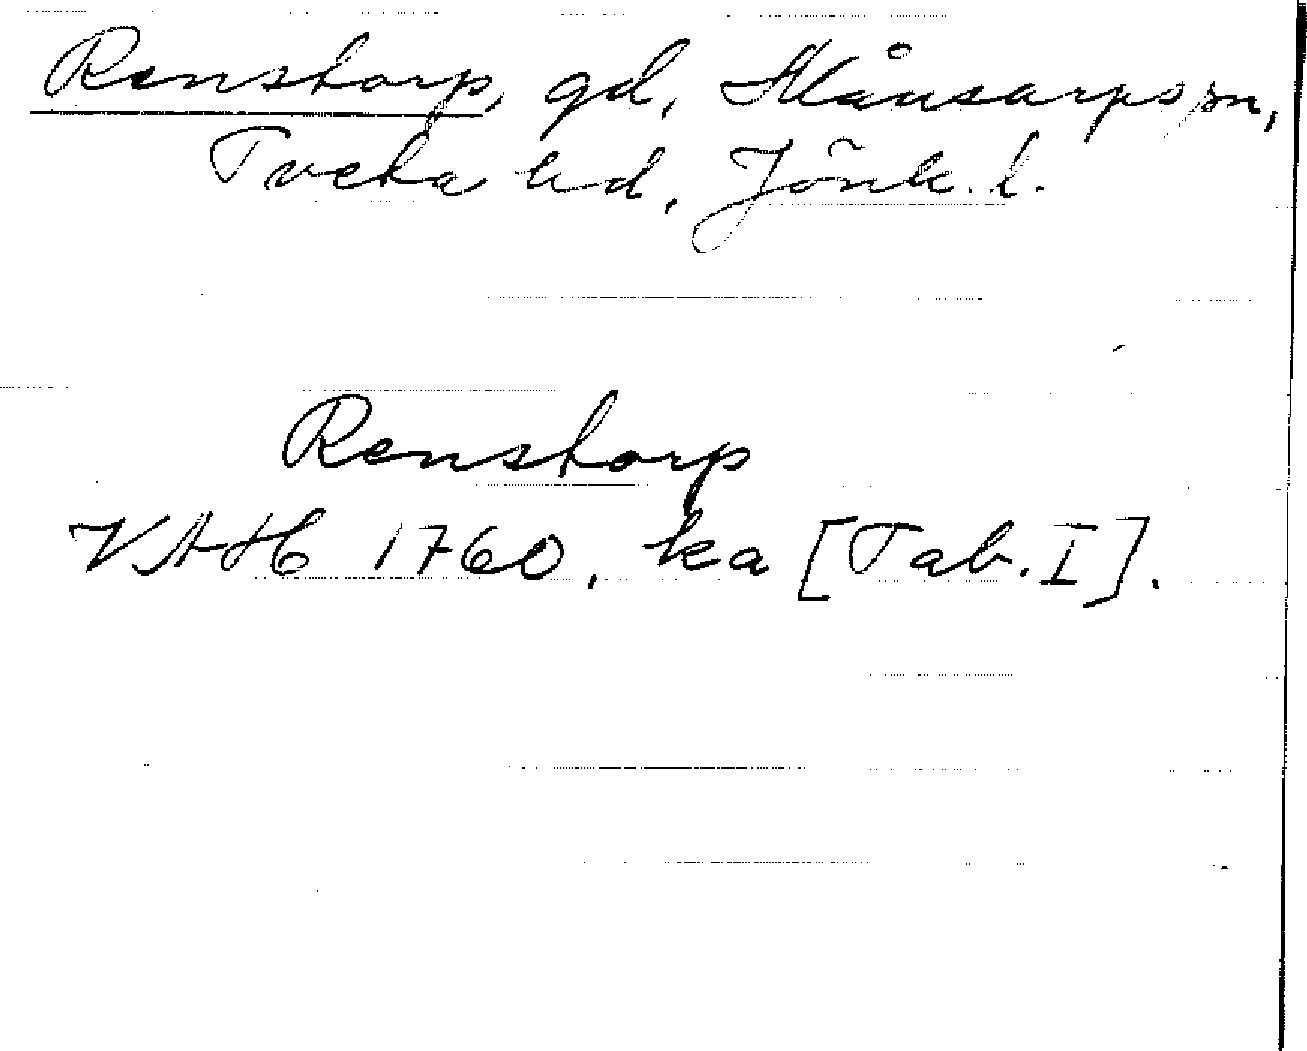 Renstorp, gd, Månsarps sn,
Tveta hd, Jönk. l.
Renstorp
VAH 1760, ka [Tab. I].